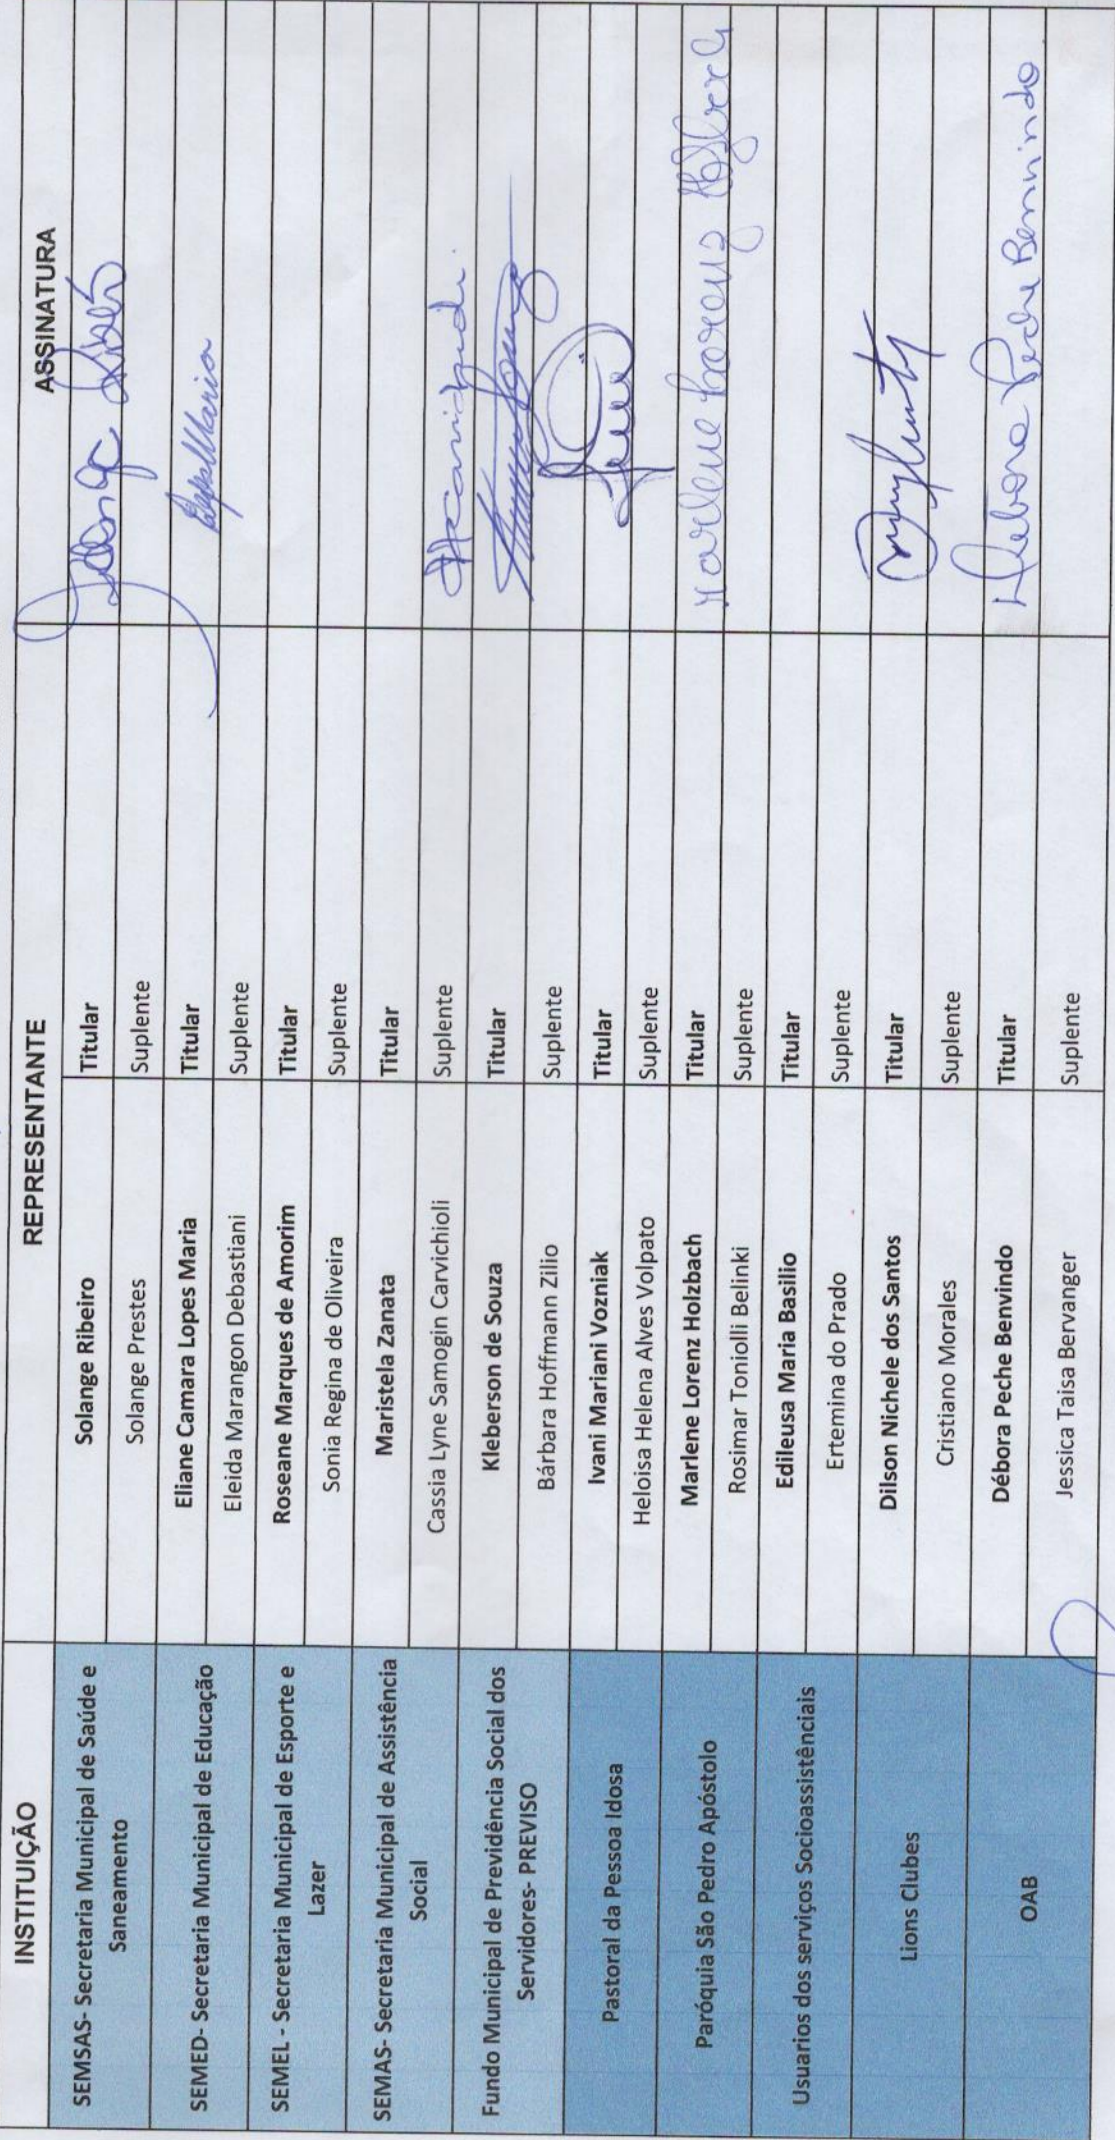 INSTITUIÇÃO REPRESENTANTE ASSINATURA
SEMSAS- Secretaria Municipal de Saúde e
Saneamento
Solange Ribeiro Titular
Solange Prestes Suplente
SEMED- Secretaria Municipal de Educação
Eliane Camara Lopes Maria Titular
Eleida Marangon Debastiani Suplente
SEMEL - Secretaria Municipal de Esporte e
Lazer
Roseane Marques de Amorim Titular
Sonia Regina de Oliveira Suplente
SEMAS- Secretaria Municipal de Assistência
Social
Maristela Zanata Titular
Cassia Lyne Samogin Carvichioli Suplente
Fundo Municipal de Previdência Social dos
Servidores- PREVISO
Kleberson de Souza Titular
Bárbara Hoffmann Zilio Suplente
Pastoral da Pessoa Idosa
Ivani Mariani Vozniak Titular
Heloisa Helena Alves Volpato Suplente
Paróquia São Pedro Apóstolo
Marlene Lorenz Holzbach Titular
Rosimar Toniolli Belinki Suplente
Usuarios dos serviços Socioassistênciais
Edileusa Maria Basilio Titular
Ertemina do Prado Suplente
Lions Clubes
Dilson Nichele dos Santos Titular
Cristiano Morales Suplente
OAB
Débora Peche Benvindo Titular Debora Peche Benvindo
Jessica Taisa Bervanger Suplente